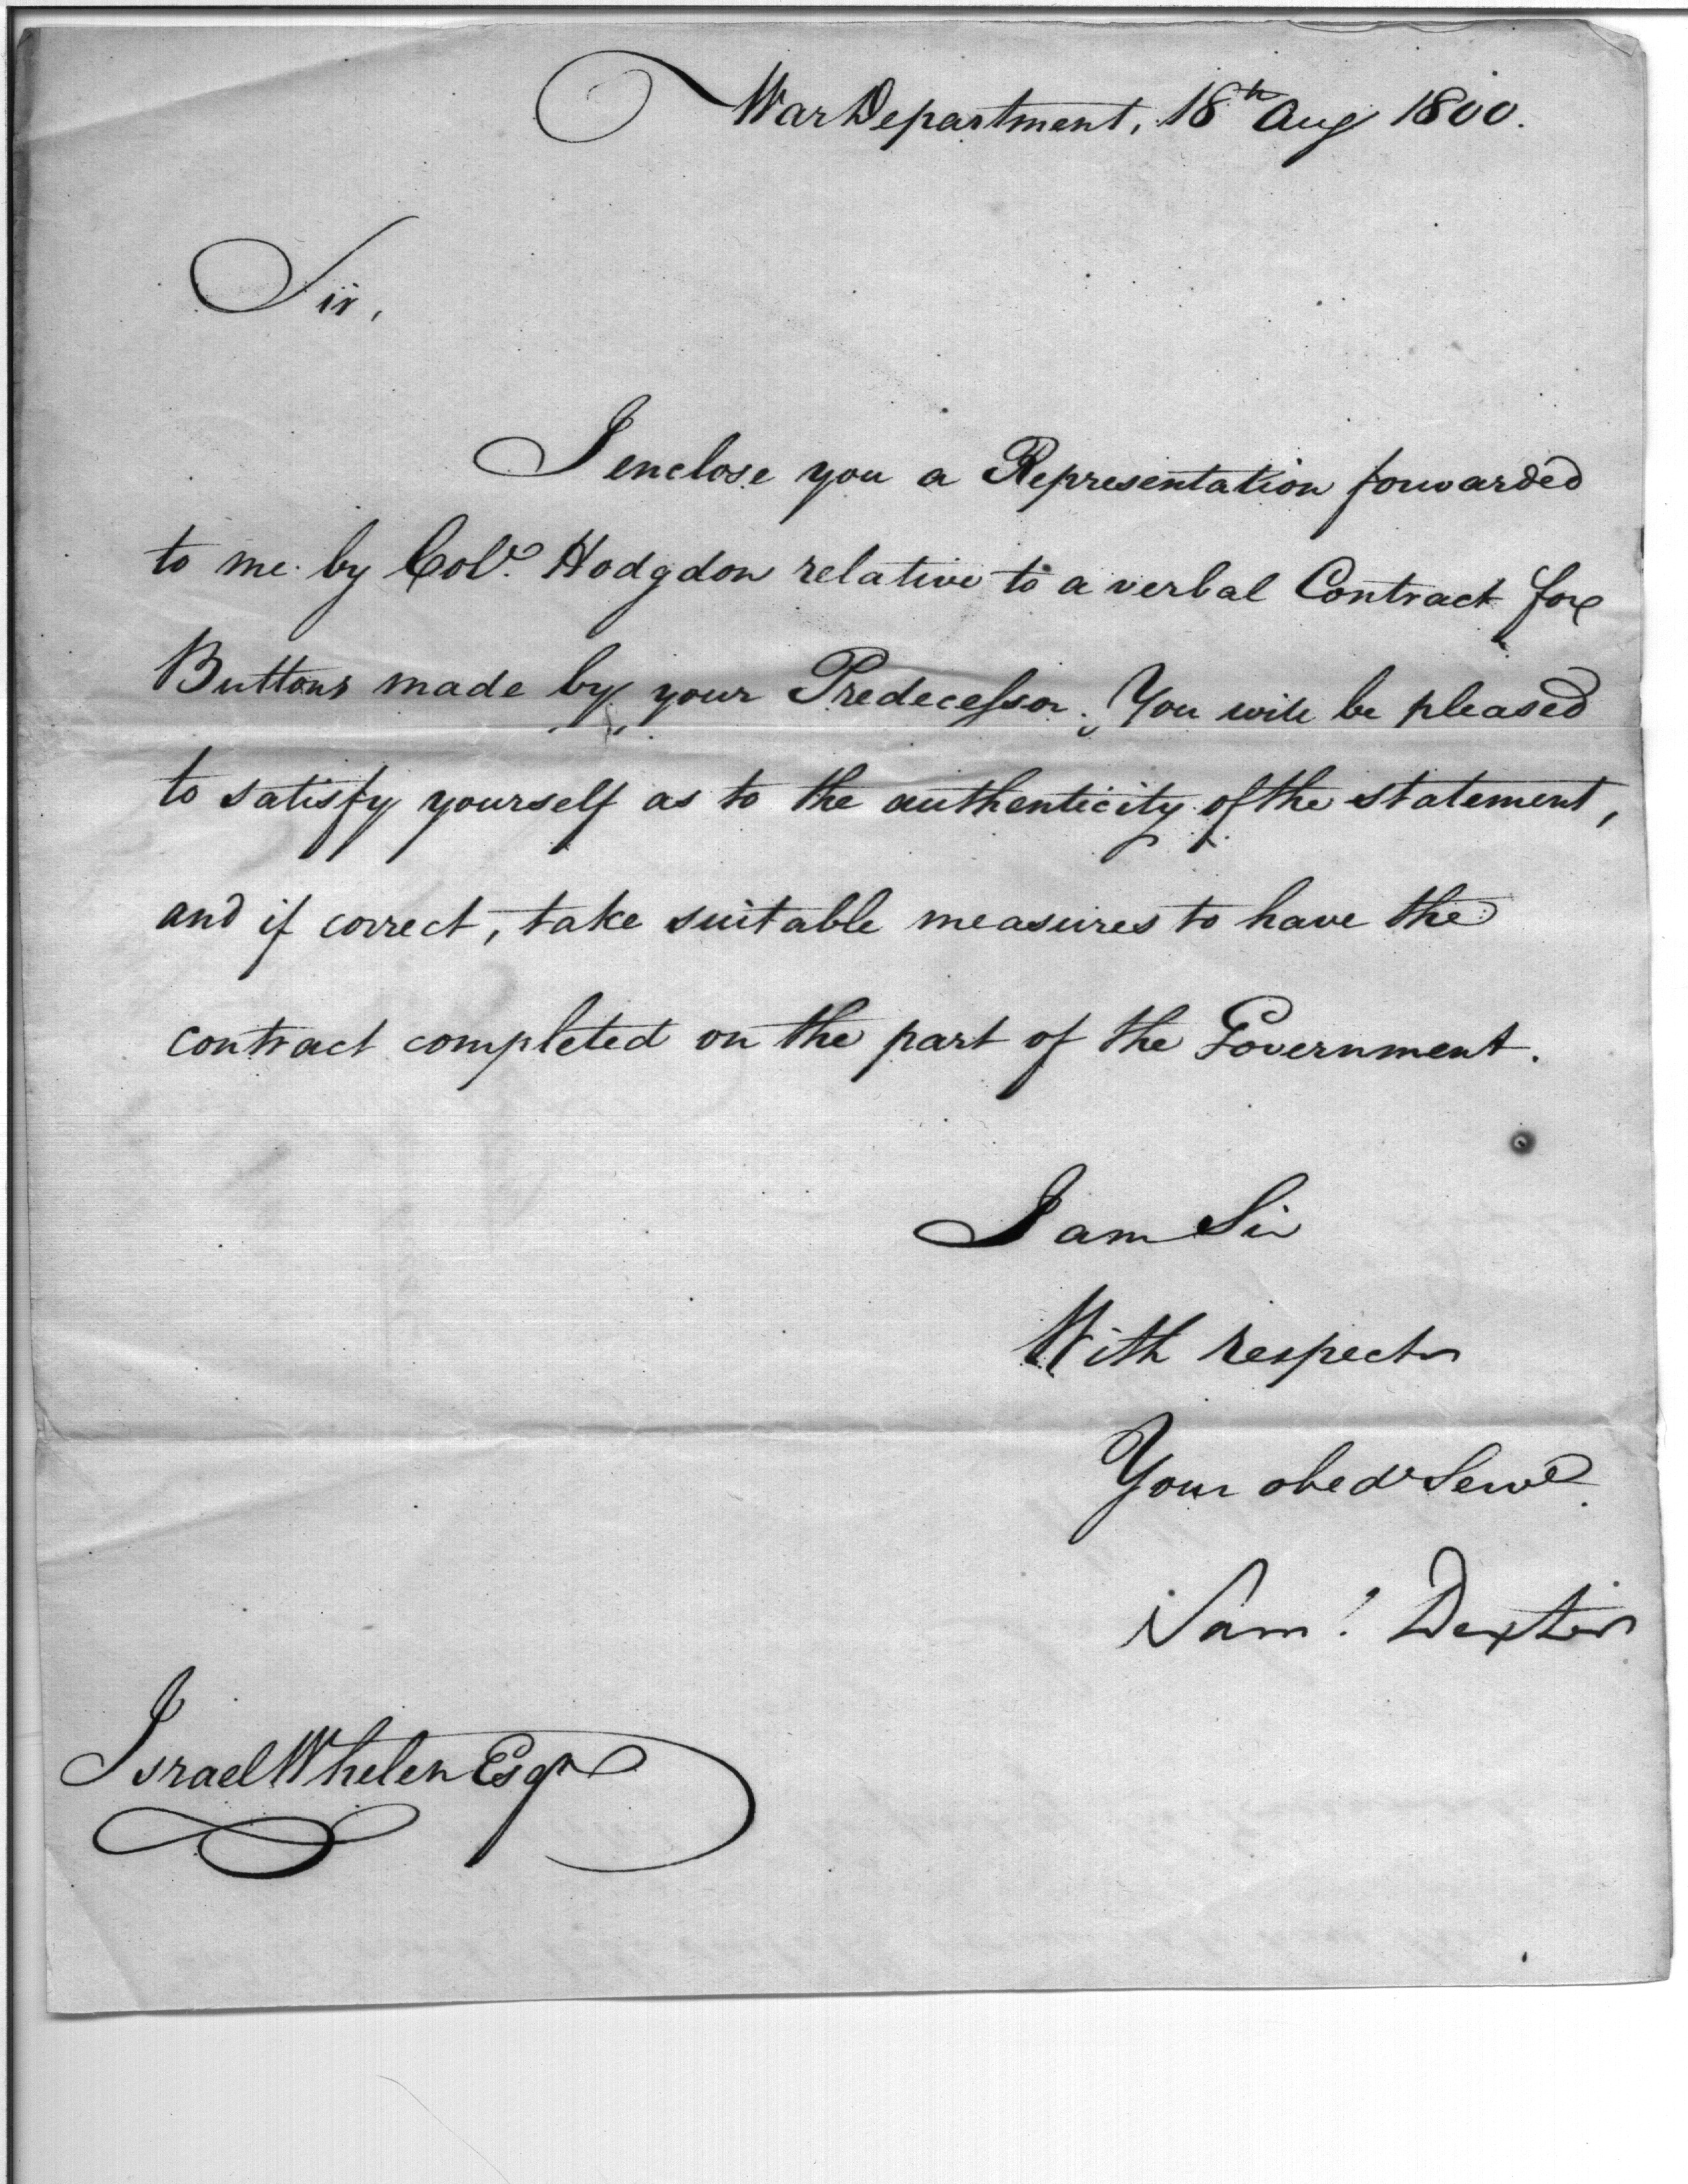 War Department, 18th Aug 1800.
Sir,
I enclose you a Representation forwarded
to me by Colo. Hodgdon relative to a verbal Contract for
Buttons made by your Predecessor. You will be pleased
to satisfy yourself as to the authenticity of the statement,
and if correct, take suitable measures to have the
contract completed on the part of the Government.
I am Sir
With respect
Your obedt Servt.
Saml. Dexter
Israel Whelen Esqr